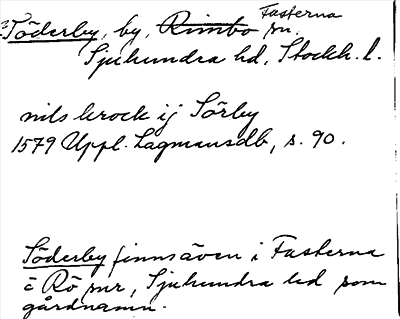 Söderby, by, Rimbo Fasterna sn.
Sjuhundra hd, Stockh. l.
nils krock ij Sörby
1579 Uppl. Lagmansdb, s. 90.
Söderby finns även i Fasterna
o Rö snr, Sjuhundra hd som
gårdnamn.